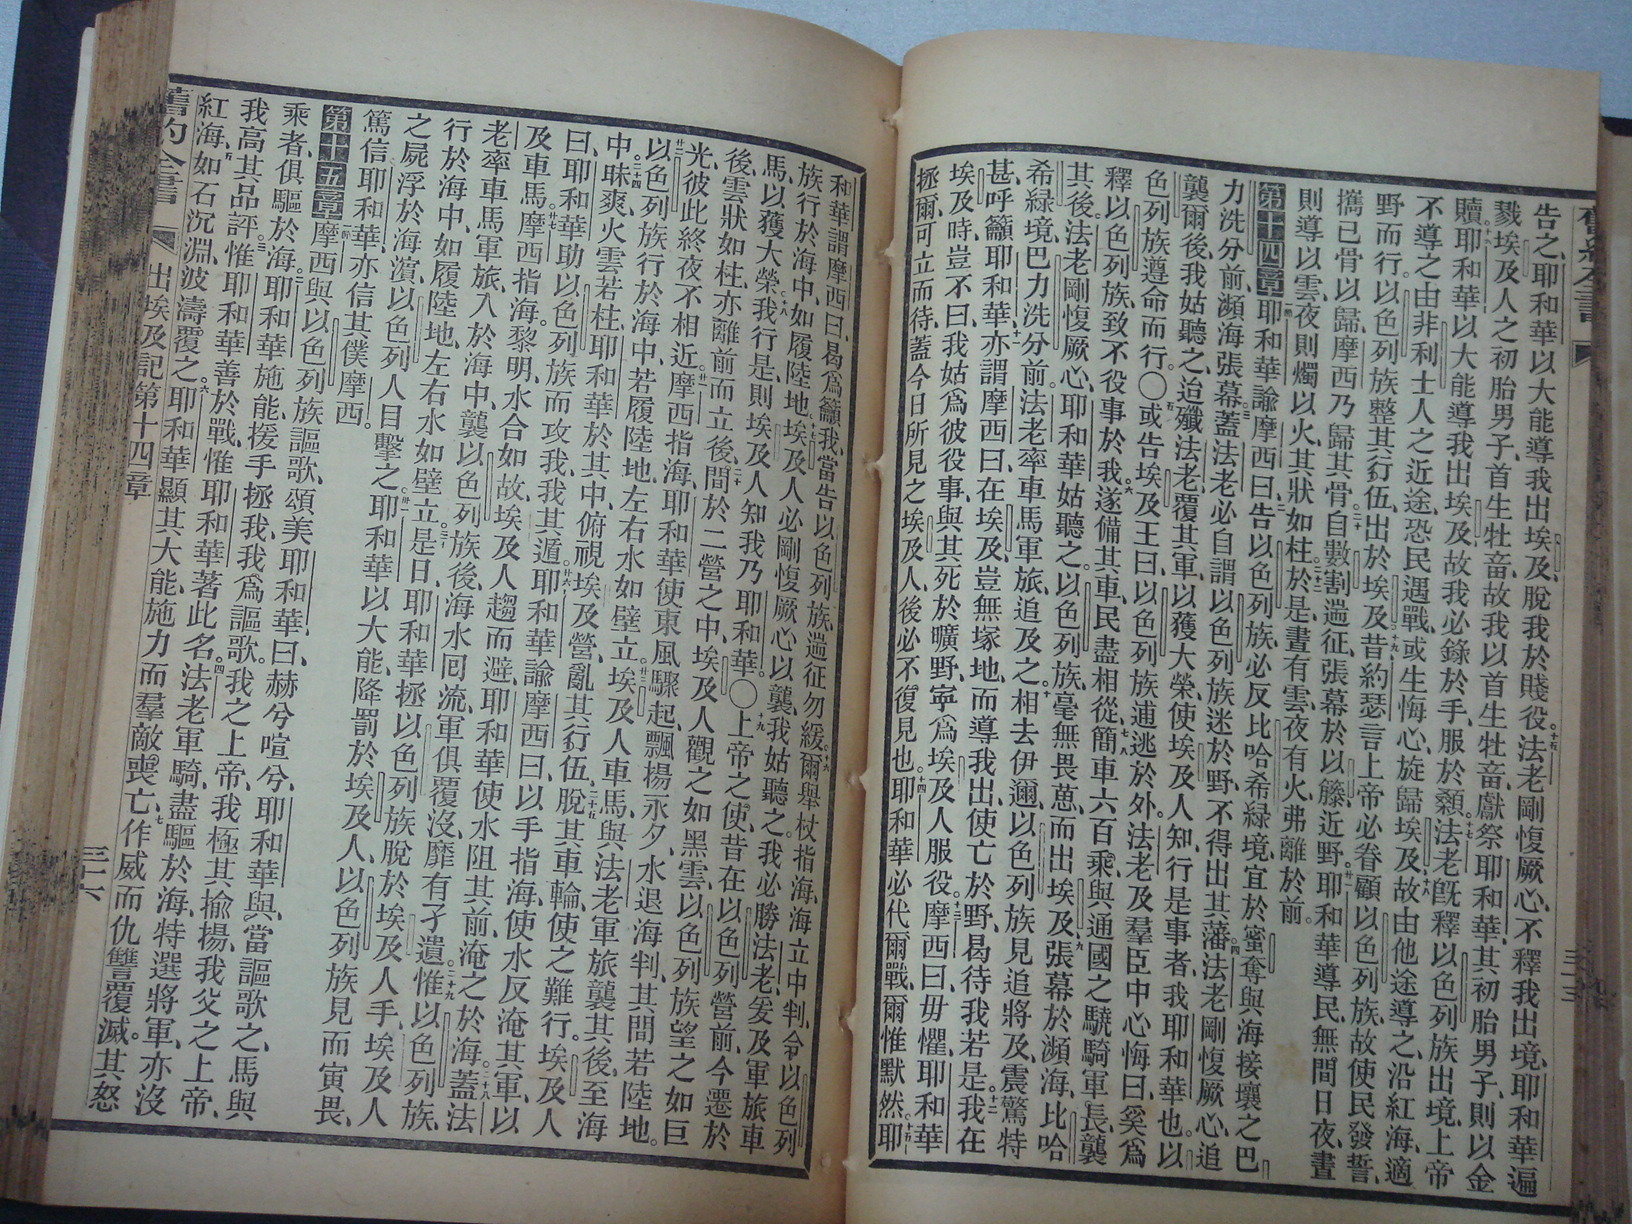 舊約全書
告之、耶和華以大能導我出埃及、脫我於賤役。十五法老剛愎厥心、不釋我出境、耶和華遍
戮埃及人之初胎男子、首生牡畜、故我以首生牡畜、獻祭耶和華、其初胎男子、則以金
贖。十六耶和華以大能導我出埃及、故我必錄於手、服於顙。十七法老旣釋以色列族出境、上帝
不導之由非利士人之近途、恐民遇戰、或生悔心、旋歸埃及。十八故由他途導之、沿紅海、適
野而行。以色列族整其行伍、出於埃及。十九昔約瑟言上帝必眷顧以色列族、故使民發誓、
攜已骨以歸、摩西乃歸其骨。二十自數割遄征、張幕於以籐、近野。廿一耶和華導民、無間日夜、晝
則導以雲、夜則燭以火、其狀如柱。廿二於是晝有雲、夜有火、弗離於前。
第十四章 一耶和華諭摩西曰、二告以色列族、必反比哈希綠境、宜於蜜奪與海接壤之巴
力洗分前、瀕海張幕。三蓋法老必自謂以色列族迷於野、不得出其藩。四法老剛愎厥心、追
襲爾後、我姑聽之、迨殲法老、覆其軍、以獲大榮、使埃及人知行是事者、我耶和華也。以
色列族遵命而行。〇五或告埃及王曰、以色列族逋逃於外。法老及羣臣中心悔曰、奚爲
釋以色列族、致不役事於我。六遂備其車、民盡相從、七簡車六百乘、與通國之驍騎軍長、襲
其後。八法老剛愎厥心、耶和華姑聽之。以色列族毫無畏葸、而出埃及。九張幕於瀕海、比哈
希綠境、巴力洗分前。法老率車馬軍旅、追及之。十相去伊邇、以色列族見追將及、震驚特
甚、呼籲耶和華。十一亦謂摩西曰、在埃及豈無塚地、而導我出、使亡於野、曷待我若是。十二我在
埃及時、豈不曰、我姑爲彼役事、與其死於曠野、寧爲埃及人服役。十三摩西曰、毋懼、耶和華
拯爾、可立而待、蓋今日所見之埃及人、後必不復見也。十四耶和華必代爾戰、爾惟默然。十五耶
和華謂摩西曰、曷爲籲我、當告以色列族、遄征勿緩。十六爾舉杖指海、海立中判、令以色列
族行於海中、如履陸地。十七埃及人必剛愎厥心以襲、我姑聽之。我必勝法老、爰及軍旅車
馬、以獲大榮。十八我行是、則埃及人知我乃耶和華。〇十九上帝之使、昔在以色列營前、今遷於
後、雲狀如柱、亦離前而立後、二十間於二營之中、埃及人觀之如黑雲、以色列族望之如巨
光、彼此終夜不相近。廿一摩西指海、耶和華使東風驟起、飄揚永夕、水退海判、其間若陸地。
廿二以色列族行於海中、若履陸地、左右水如壁立。廿三埃及人車馬、與法老軍旅襲其後、至海
中。二十四昧爽、火雲若柱、耶和華於其中、俯視埃及營、亂其行伍、二十五脫其車輪、使之難行。埃及人
曰、耶和華助以色列族而攻我、我其遁。廿六耶和華諭摩西曰、以手指海、使水反淹其軍、以
及車馬。廿七摩西指海。黎明、水合如故、埃及人趨而避、耶和華使水阻其前、淹之於海。二十八蓋法
老率車馬軍旅、入於海中、襲以色列族後、海水囘流、軍俱覆沒、靡有孑遺。二十九惟以色列族
行於海中、如履陸地、左右水如壁立。三十是日、耶和華拯以色列族、脫於埃及人手、埃及人
之屍、浮於海濵、以色列人目擊之。卅一耶和華以大能、降罰於埃及人、以色列族見而寅畏、
篤信耶和華、亦信其僕摩西。
第十五章 一摩西與以色列族、謳歌頌美耶和華、曰、赫兮喧兮、耶和華與、當謳歌之、馬與
乘者、俱驅於海。二耶和華施能、援手拯我、我爲謳歌。我之上帝、我極其揄揚、我父之上帝、
我高其品評。三惟耶和華善於戰、惟耶和華著此名。四法老軍騎、盡驅於海、特選將軍、亦沒
紅海、五如石沉淵、波濤覆之。六耶和華顯其大能、施力而羣敵喪亡、七作威而仇讐覆滅。其怒
舊約全書
出埃及記第十四章
三十六